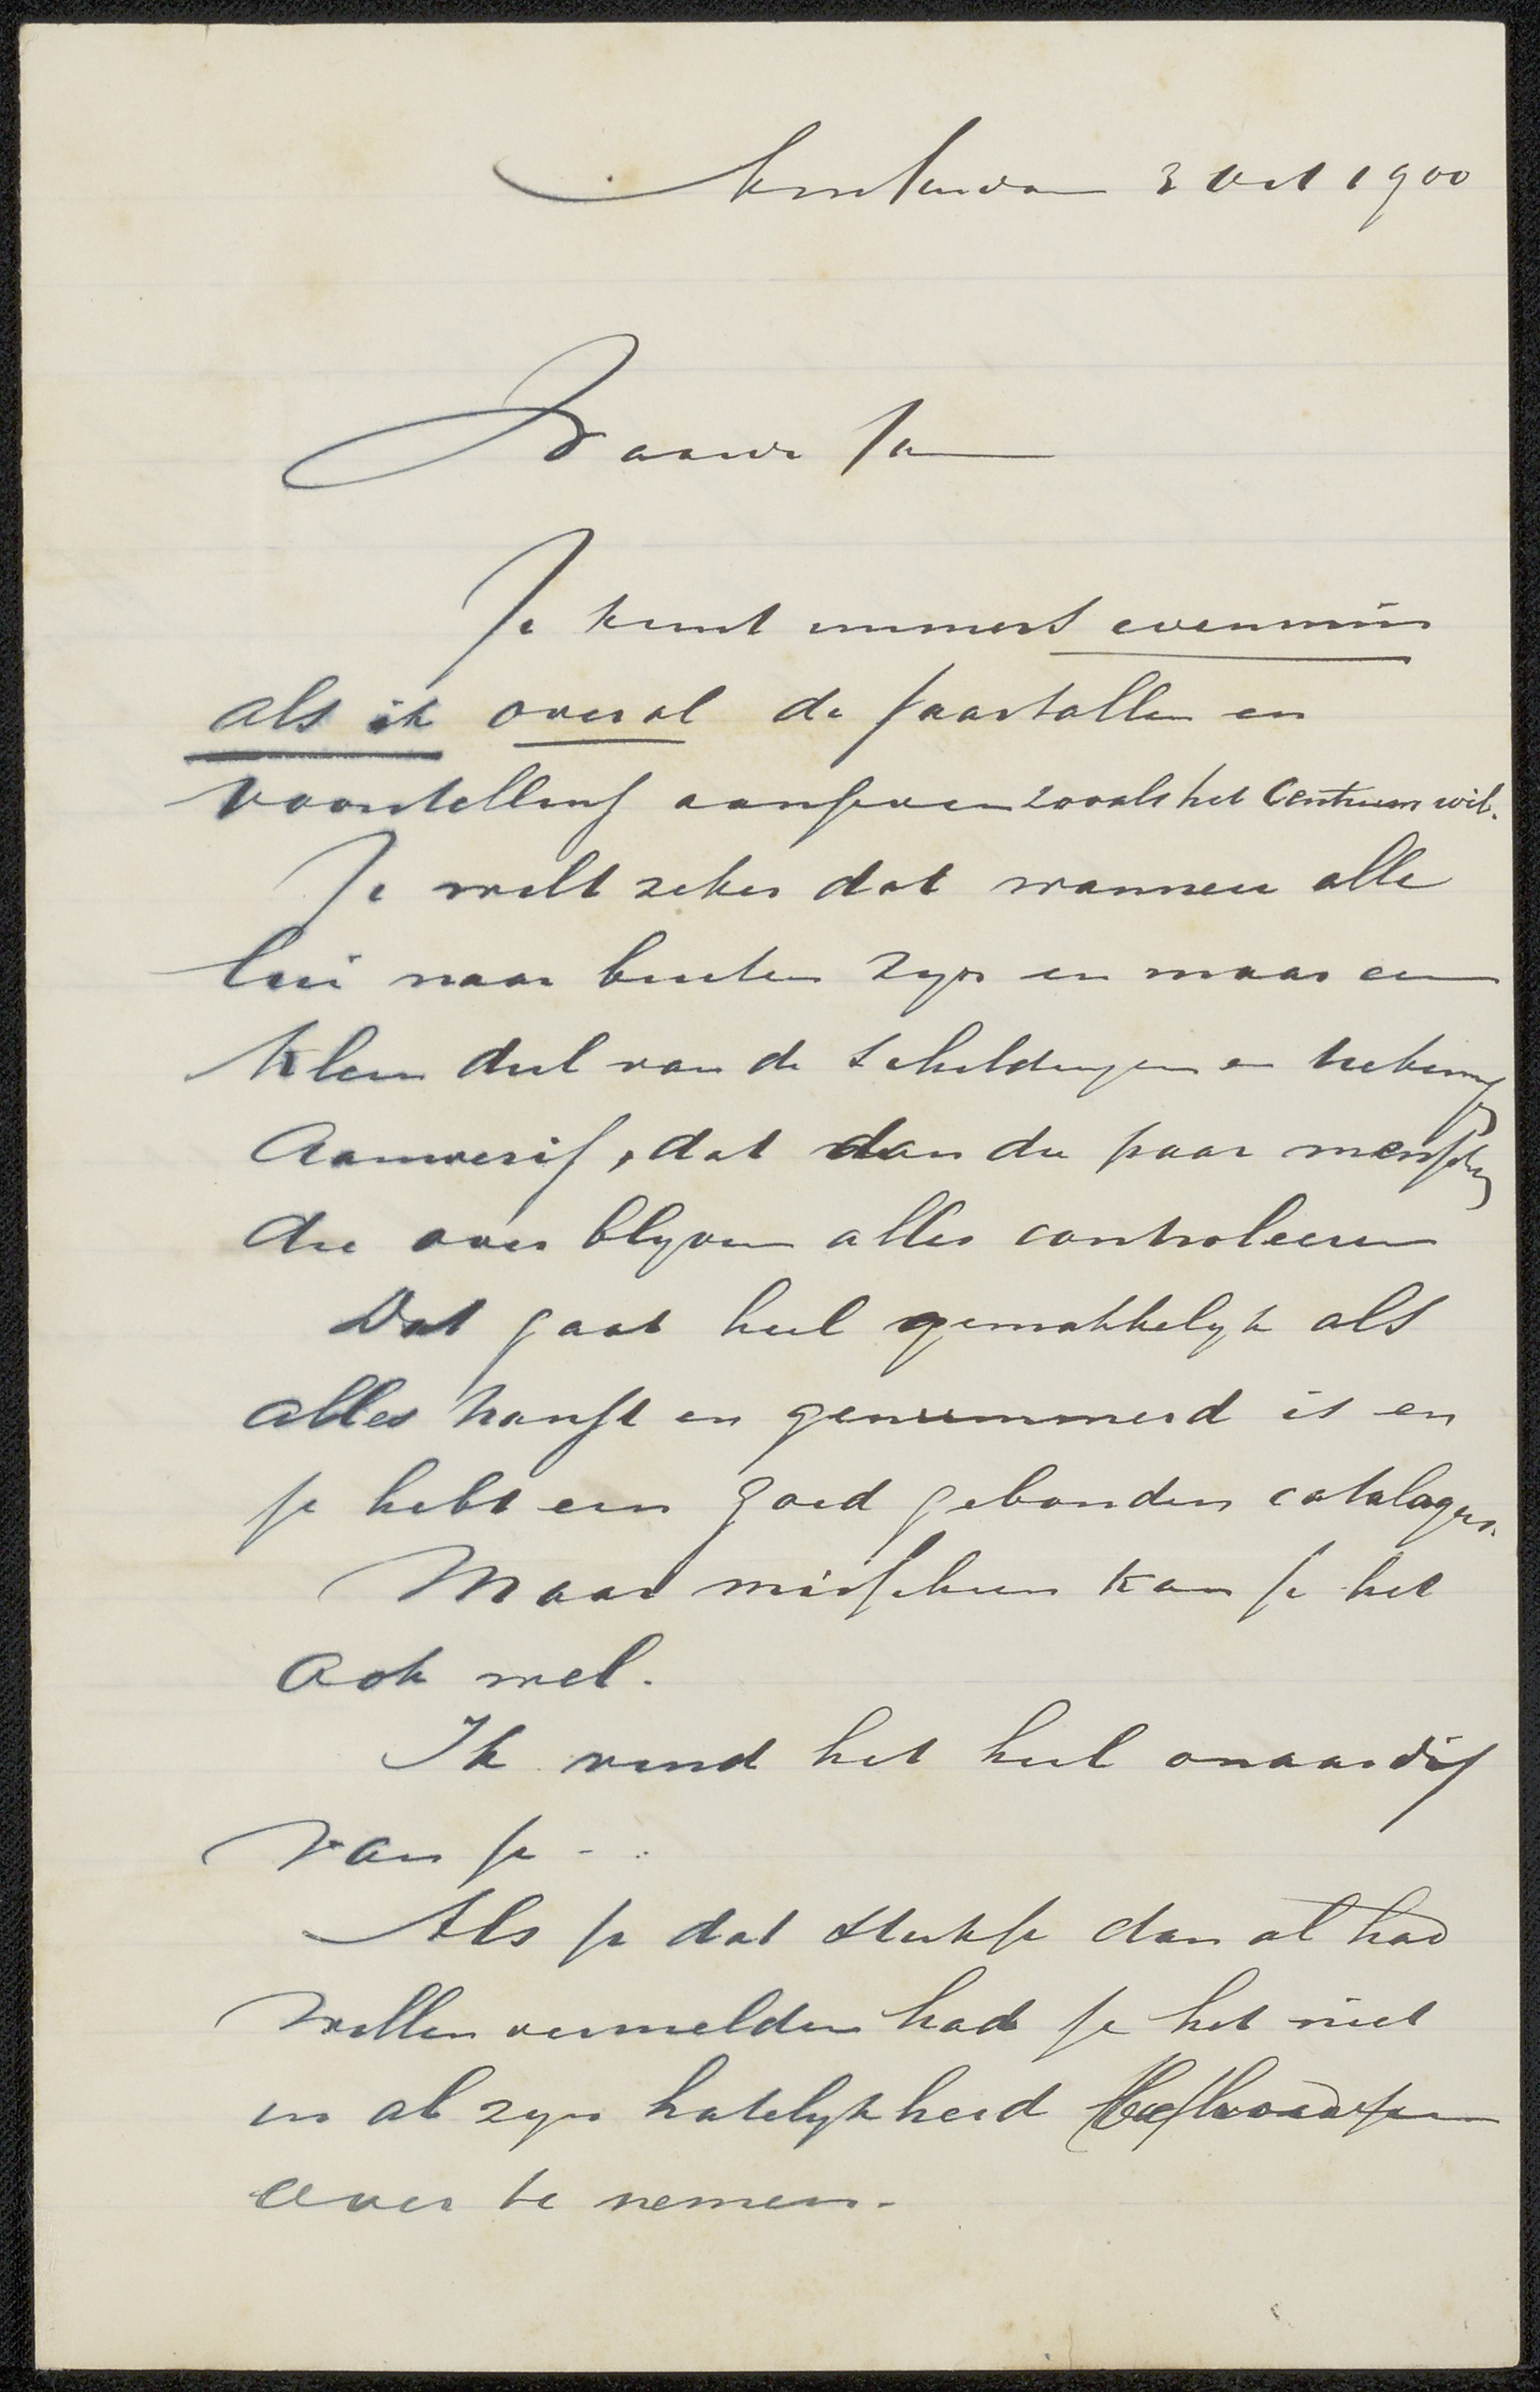 Amsterdam 3 Oct 1900
Waarde Jan
Je kunt immers evenmin
als ik overal de jaartallen en
voorstelling aangeven zooals het Centrum wil.
Je wilt zeker dat wanneer alle
lui naar buiten zyn en maar een
klein deel van de schilderyen en teekeningen
aanwezig, dat dan die paar menschen
die over blyven alles controleeren
Dat gaat heel gemakkelyk als
alles hangt en genummerd is en
je hebt een goed gebonden catalogus.
Maar misschien kan je het
ook wel.
Ik vind het heel onaardig
van je - .
Als je dat stukje dan al had
willen vermelden had je het niet
in al zyn hatelykheid
over te nemen.